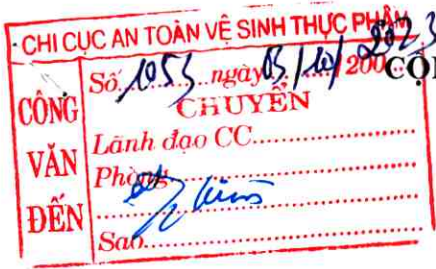 CHI CỤC AN TOÀN VỆ SINH THỰC PHẨM
CÔNG VĂN ĐẾN
Số 1053 ngày 03/10/2023 200
CHUYỂN
Lãnh đạo CC
Phòng
Sao
CỘ